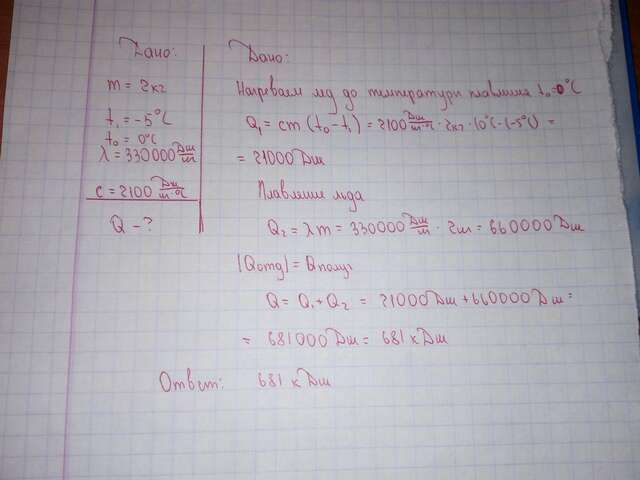 Дано:
m = 2кг
t₁ = -5°C
t₀ = 0°C
λ = 330000 Дж/кг
c = 2100 Дж/кг·°C
Q - ?
Дано:
Нагреваем лёд до температуры плавления t₀ = 0°C
Q₁ = cm (t₀ - t₁) = 2100 Дж/кг·°C · 2кг · (0°C - (-5°C)) =
= 21000 Дж
Плавление льда
Q₂ = λm = 330000 Дж/кг · 2кг = 660000 Дж
|Qотд| = Qполуч
Q = Q₁ + Q₂ = 21000 Дж + 660000 Дж =
= 681000 Дж = 681 кДж
Ответ: 681 кДж